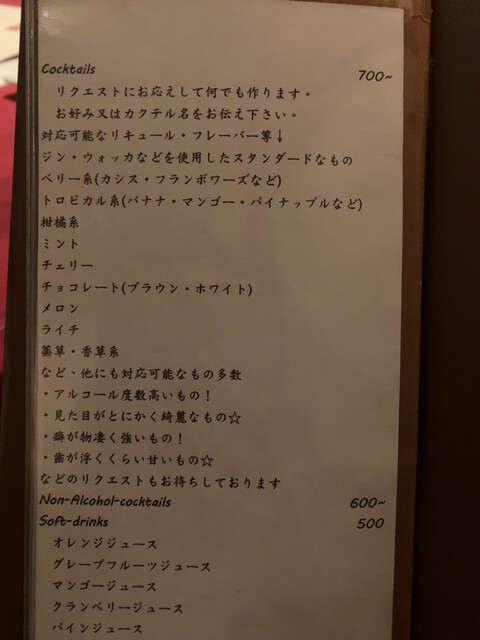 Cocktails 700~
リクエストにお応えして何でも作ります。
お好み又はカクテル名をお伝え下さい。
対応可能なリキュール・フレーバー等↓
ジン・ウォッカなどを使用したスタンダードなもの
ベリー系(カシス・フランボワーズなど)
トロピカル系(バナナ・マンゴー・パイナップルなど)
柑橘系
ミント
チェリー
チョコレート(ブラウン・ホワイト)
メロン
ライチ
薬草・香草系
など、他にも対応可能なもの多数
・アルコール度数高いもの！
・見た目がとにかく綺麗なもの☆
・癖が物凄く強いもの！
・歯が浮くくらい甘いもの☆
などのリクエストもお待ちしております
Non-Alcohol-cocktails 600~
Soft-drinks 500
オレンジジュース
グレープフルーツジュース
マンゴージュース
クランベリージュース
パインジュース